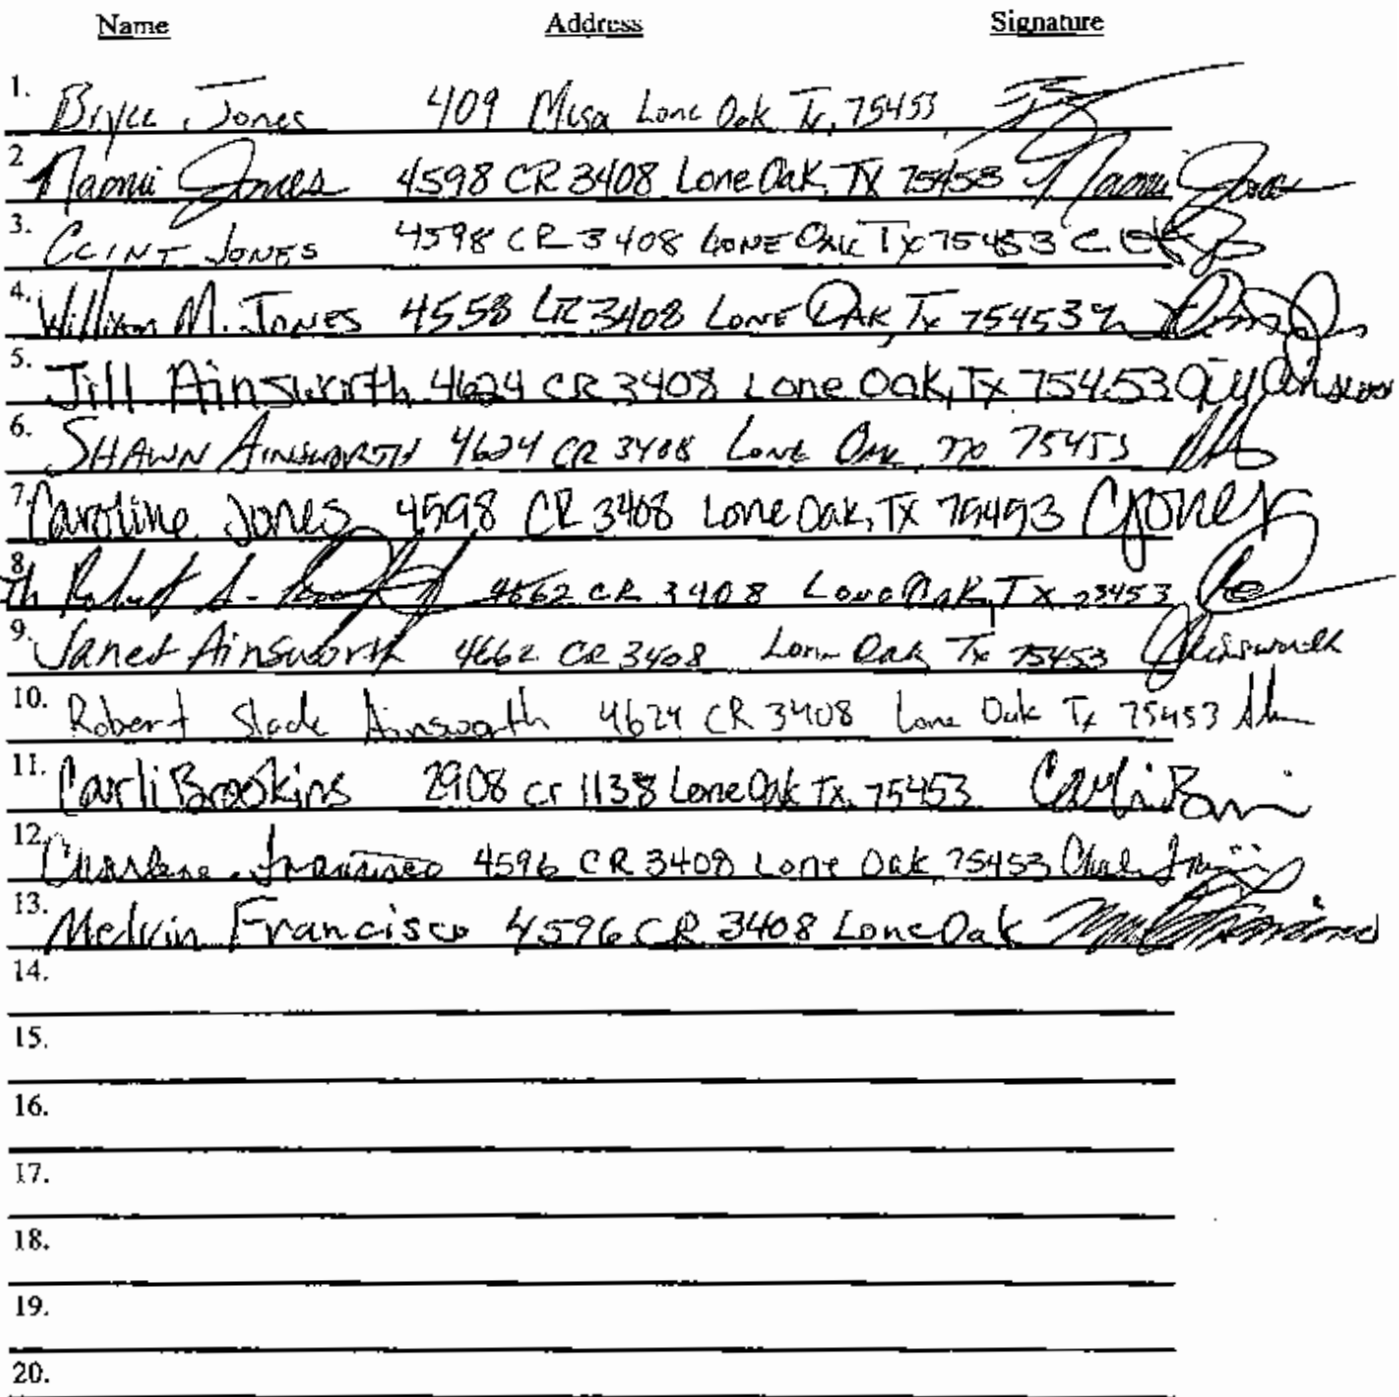 Name Address Signature
1. Bryce Jones 409 Mesa Lone Oak Tx, 75453
2. Naomi Jones 4598 CR 3408 Lone Oak, TX 75453 Naomi Jones
3. CLINT JONES 4598 CR 3408 LONE OAK Tx 75453
4. William M. JONES 4558 CR 3408 LONE OAK, Tx 75453
5. Jill Ainsworth 4624 CR 3408 Lone Oak, Tx 75453
6. SHAWN AINSWORTH 4624 CR 3408 LONE OAK 75453
7. Caroline Jones 4598 CR 3408 Lone Oak, TX 75453 CJones
8. Robert A. 4662 CR 3408 Lone Oak, TX
9. Janet Ainsworth 4662 CR 3408 Lone Oak Tx 75453 JAinsworth
10. Robert Slade Ainsworth 4624 CR 3408 Lone Oak Tx 75453
11. Carli Brookins 2908 cr 1138 Lone Oak Tx. 75453
12. Charlene Francisco 4596 CR 3408 Lone Oak 75453
13. Melvin Francisco 4596 CR 3408 Lone Oak
14.
15.
16.
17.
18.
19.
20.